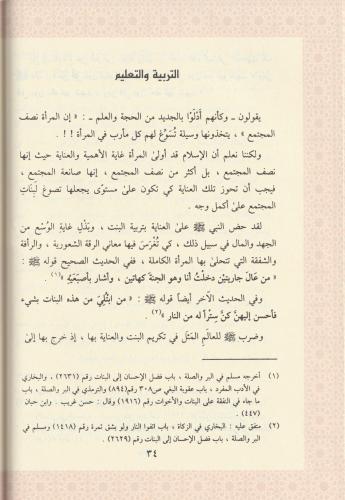 التربية والتعليم
يقولون ـ وكأنهم أَدْلَوْا بالجديد من الحجة والعلم ـ : « إن المرأة نصف
المجتمع » ، يتخذونها وسيلة تُسَوِّغ لهم كل مأرب في المرأة ! ! .
ولكننا نعلم أن الإسلام قد أولىٰ المرأة غاية الأهمية والعناية حيث إنها
نصف المجتمع ، بل أكثر من نصف المجتمع ، إنها صانعة المجتمع ،
فيجب أن تحوز تلك العناية كي تكون علىٰ مستوًى يجعلها تصوغ لَبِنَاتِ
المجتمع علىٰ أكمل وجه .
لقد حض النبي ﷺ علىٰ العناية بتربية البنت ، وبَذْلِ غايةِ الوُسْع من
الجهد والمال في سبيل ذلك ، كي تُغْرَسَ فيها معاني الرقة الشعورية ، والرأفة
والشفقة التي تتحلىٰ بها المرأة الكاملة ، ففي الحديث الصحيح قوله ﷺ :
« من عَالَ جاريتَيْن دخلتُ أنا وهو الجنةَ كهاتين ، وأشار بأصبَعَيْهِ »(١) .
وفي الحديث الآخر أيضاً قوله ﷺ : « من ابتُلِيَ من هذه البنات بشيء
فأحسن إليهنَّ كنَّ سِتراً له من النار »(٢) .
وضرب ﷺ للعالَمِ المَثَلَ في تكريم البنت والعناية بها ، إذ خرج بها إلىٰ
(١) أخرجه مسلم في البر والصلة ، باب فضل الإحسان إلى البنات رقم (٢٦٣١) ، والبخاري
في الأدب المفرد ، باب عقوبة البغي ص٣٠٨ رقم(٨٩٤) والترمذي في البر والصلة ، باب
ما جاء في النفقة على البنات والأخوات رقم (١٩١٦) وقال : حسن غريب . وابن حبان
(٤٤٧) .
(٢) متفق عليه : البخاري في الزكاة ، باب اتقوا النار ولو بشق تمرة رقم (١٤١٨) ومسلم في
البر والصلة ، باب فضل الإحسان إلى البنات رقم (٢٦٢٩) .
٣٤